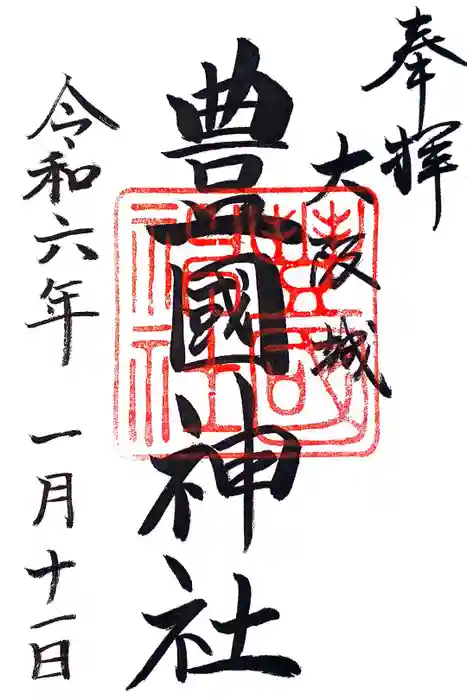 奉拝
大阪城
豊國神社
令和六年 一月十一日